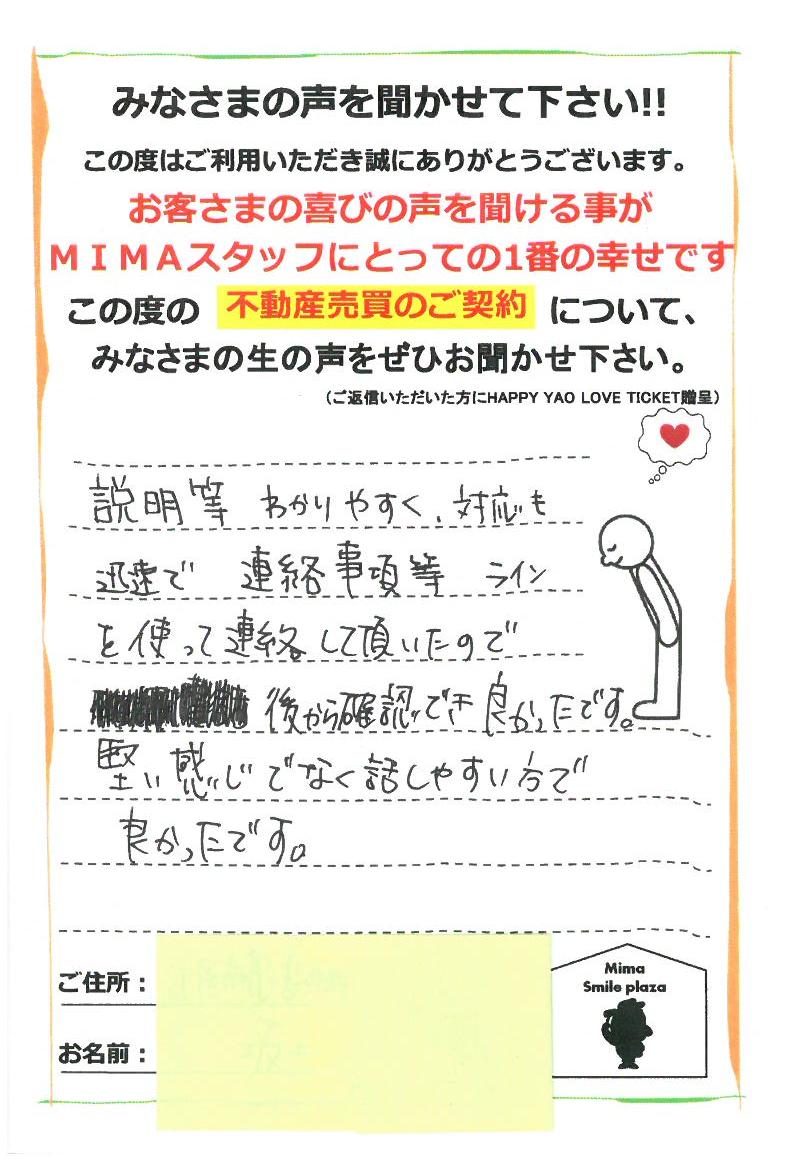 みなさまの声を聞かせて下さい!!
この度はご利用いただき誠にありがとうございます。
お客さまの喜びの声を聞ける事が
ＭＩＭＡスタッフにとっての1番の幸せです
この度の 不動産売買のご契約 について、
みなさまの生の声をぜひお聞かせ下さい。
（ご返信いただいた方にHAPPY YAO LOVE TICKET贈呈）
説明等 わかりやすく、対応も
迅速で 連絡事項等 ライン
を使って連絡して頂いたので
後から確認でき良かったです。
堅い感じでなく話しやすい方で
良かったです。
ご住所：
お名前：
Mima
Smile plaza